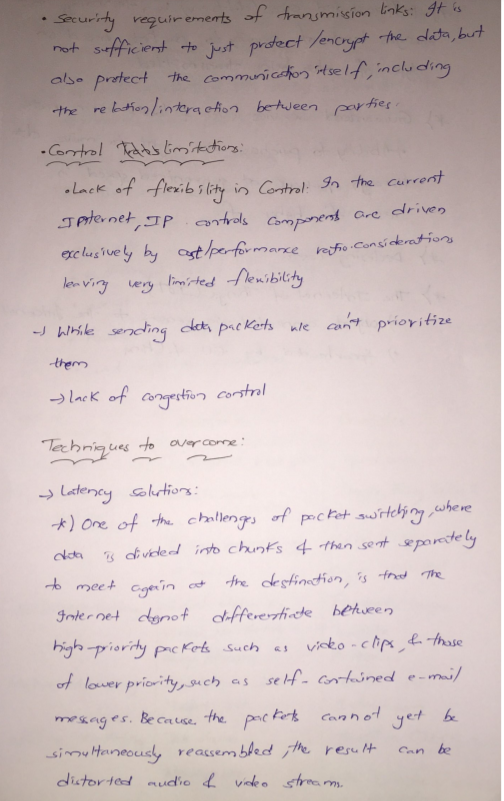 • Security requirements of transmission links: It is
not sufficient to just protect/encrypt the data, but
also protect the communication itself, including
the relation/interaction between parties.
• Control limitations:
• Lack of flexibility in Control: In the current
Internet, IP controls components are driven
exclusively by cost/performance ratio considerations
leaving very limited flexibility
→ While sending data packets we can't prioritize
them
→ Lack of congestion control
Techniques to overcome:
→ Latency solutions:
*) One of the challenges of packet switching, where
data is divided into chunks & then sent separately
to meet again at the destination, is that the
Internet donot differentiate between
high-priority packets such as video-clips, & those
of lower priority, such as self-contained e-mail
messages. Because the packets cannot yet be
simultaneously reassembled, the result can be
distorted audio & video stream.